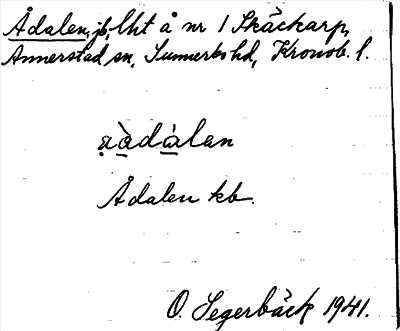 Ådalen, jb, lht å nr 1 Skäckarp,
Annerstad sn, Sunnerbo hd, Kronob. l.
a̤ò̱dà̱lan
Ådalen kb.
O. Segerbäck 1941.